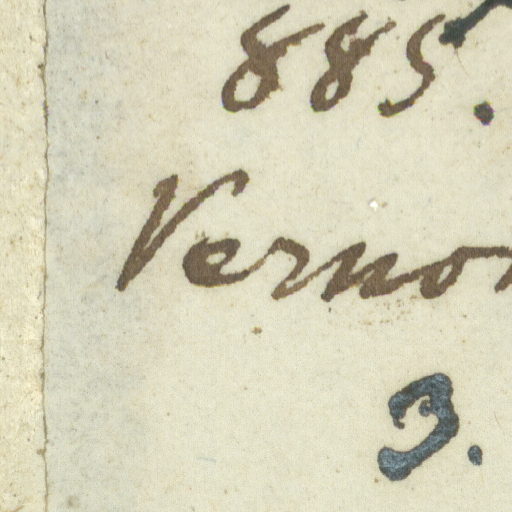 885.
Verno
3.